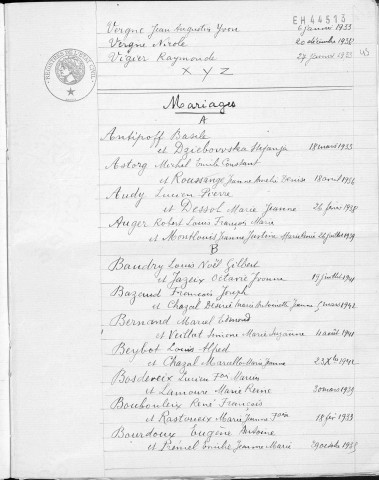 EH44513
Vergne Jean Augustin Yvon 6 janvier 1933
Vergne Nicole 20 décembre 1938
Vigier Raymonde 27 janvier 1933
X Y Z
Mariages
A
Antipoff Basile
et Dziebowska Stefanja 18 mars 1933
Astorg Michel Emile Constant
et Roussange Jeanne Denise 18 avril 1936
Audy Lucien Pierre
et Dessol Marie Jeanne 26 1938
Auger Robert Louis François Marie
et Montlouis Jeanne Justine juillet 1939
B
Baudry Louis Noël Gilbert
et Jazeix Octavie Yvonne juillet 1941
Bazaud François Joseph
et Chazal Désirée Antoinette Jeanne mars 1942
Bernard Marcel Edmond
et Veillat Simone Marie Suzanne août 1941
Beybot Louis Alfred
et Chazal Maria Jeanne 23 Xbre 1942
Bosdeveix Lucien Marien
et Lamoure Marie Reine 30 mars 1939
Boubouleix René François
et Rastoueix Marie Jeanne 18 1933
Bourdoux Eugène Antoine
et Emilie Jeanne Marie 29 octobre